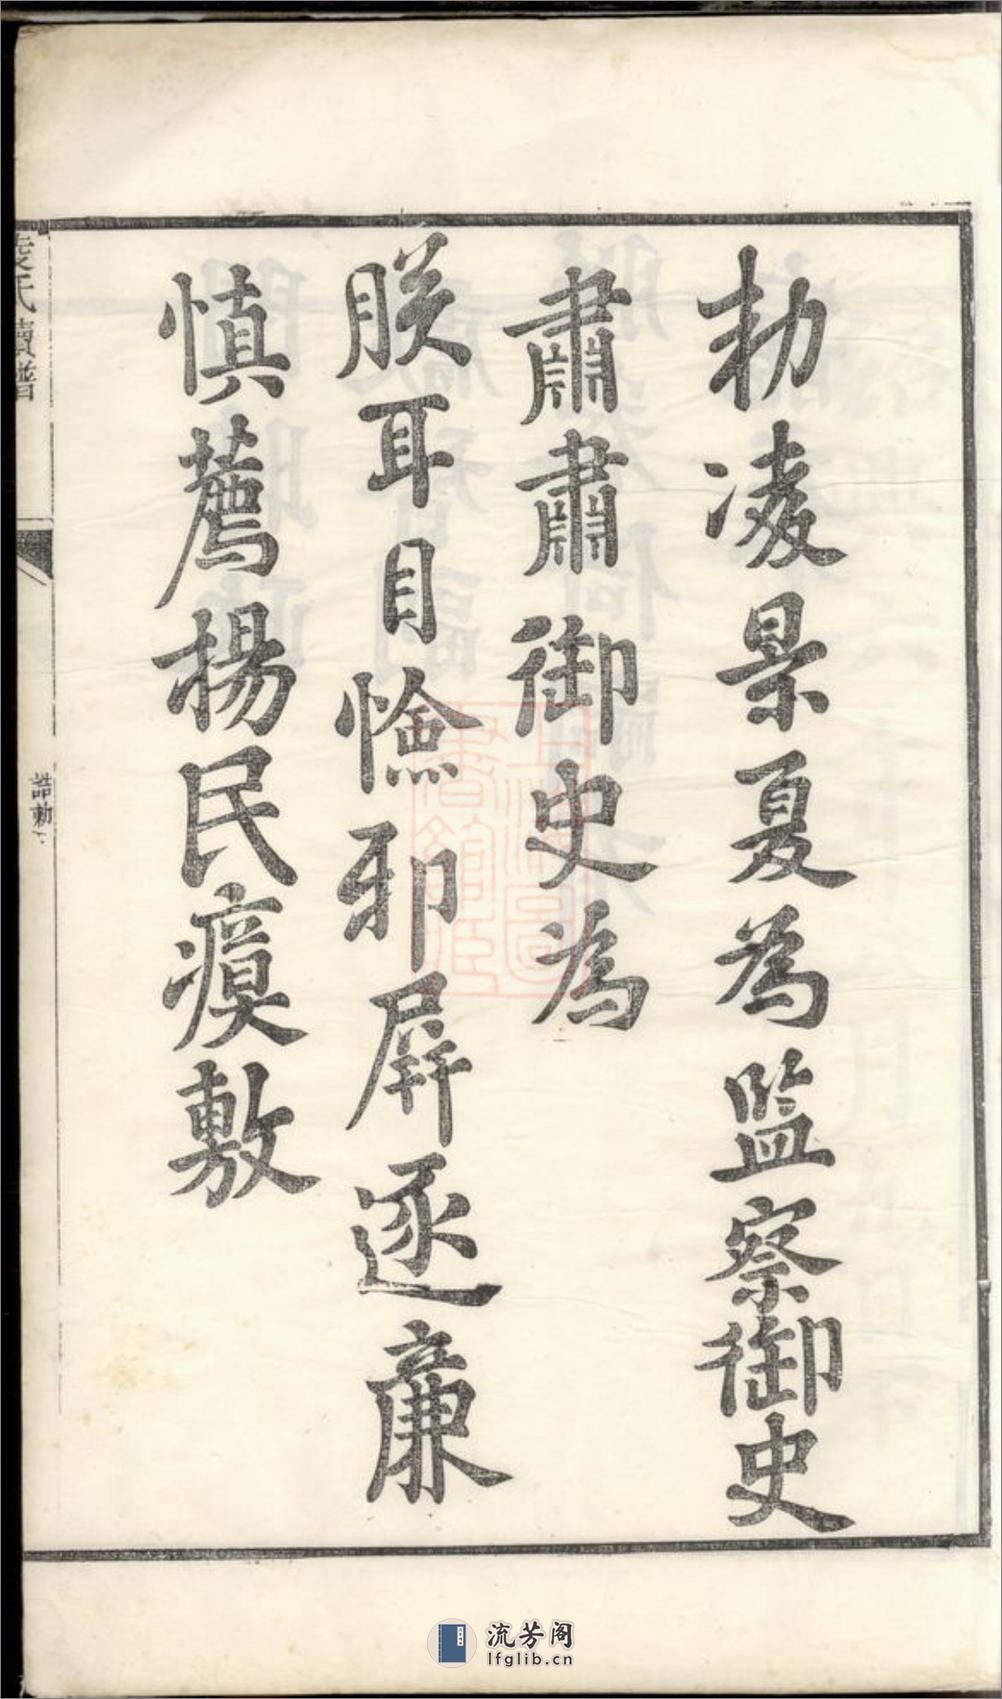 勅凌景夏為監察御史
肅肅御史為
朕耳目憸邪屏逐廉
慎薦揚民瘼敷
凌氏續譜
誥勅
流芳阁
lfglib.cn